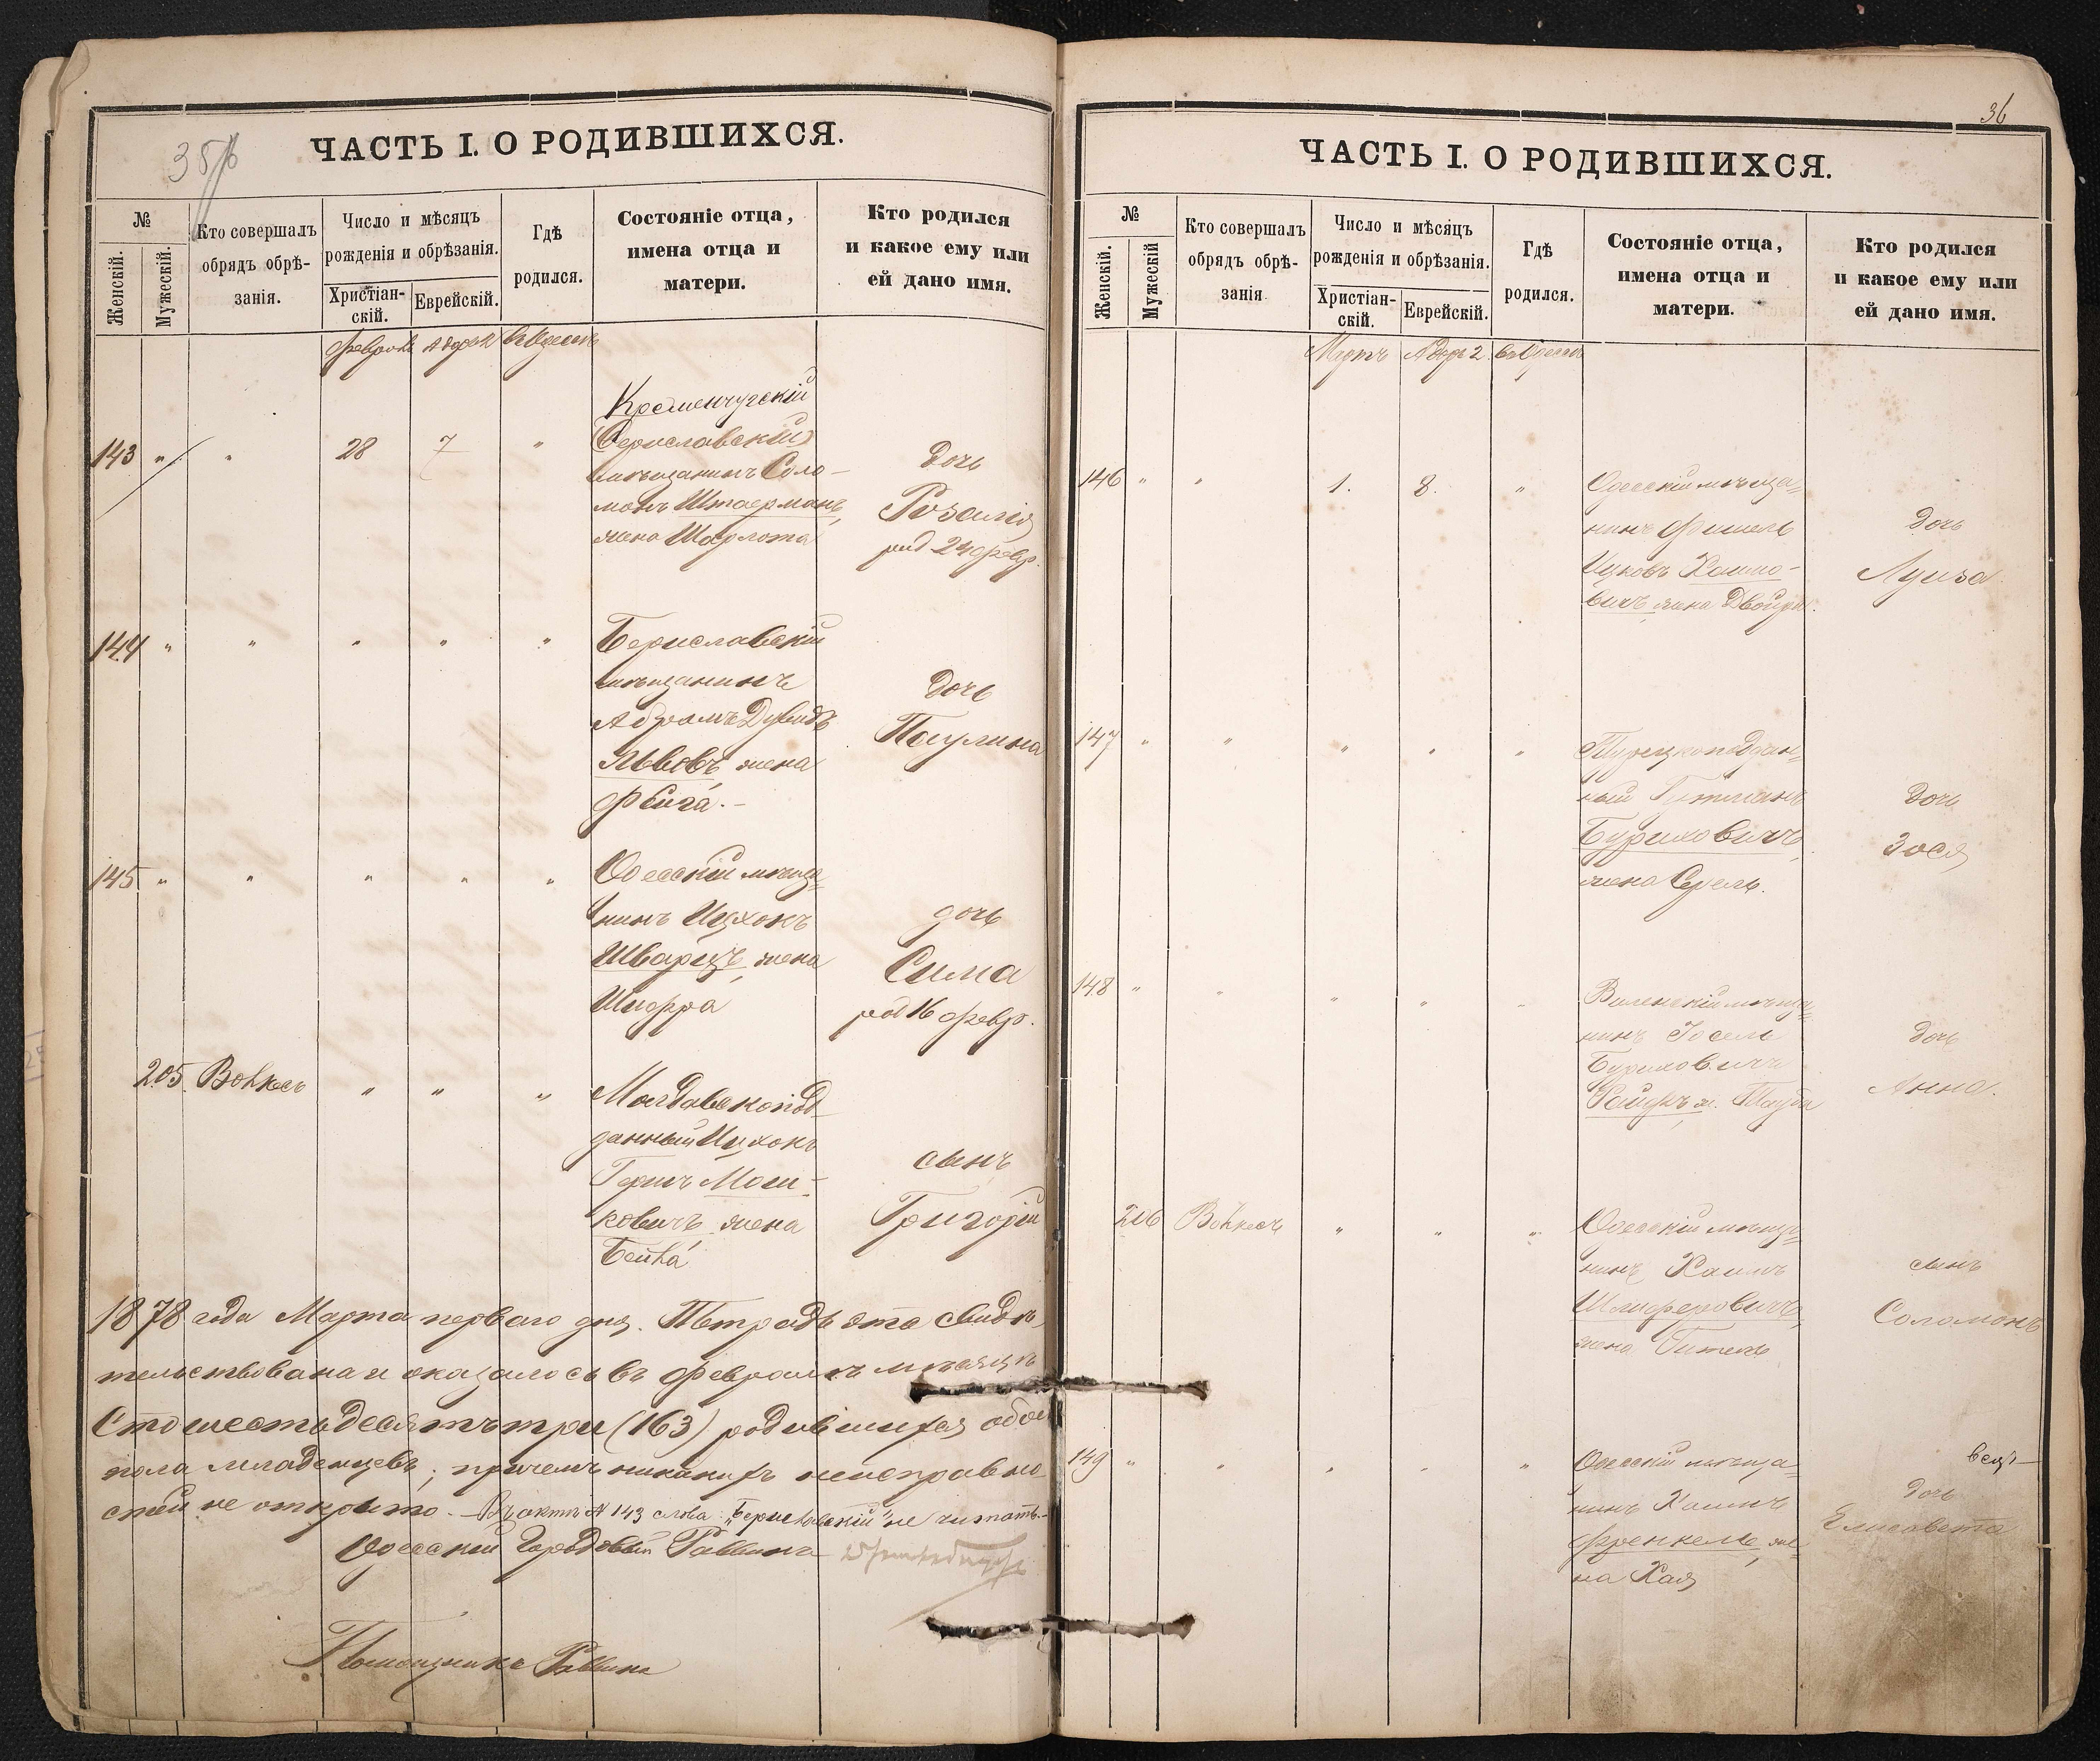 35/б
ЧАСТЬ I. О РОДИВШИХСЯ.
№
Женскій.
Мужескій.
Кто совершалъ
обрядъ обрѣ-
занія.
Число и мѣсяцъ
рожденія и обрѣзанія.
Христіан-
скій.
Еврейскій.
Гдѣ
родился.
Состояніе отца,
имена отца и
матери.
Кто родился
и какое ему или
ей дано имя.
Февраль Адаръ 2 въ Одессѣ
Кременчугскій
143 " " 28 7 "
(Бериславскій)
мѣщанинъ Соло-
монъ Штаерманъ,
жена Шарлота
дочь
Розалія
род 24 февр.
144 " " " " "
Бериславскій
мѣщанинъ
Абрамъ Дувидъ
Львовъ, жена
Фейга. -
дочь
Паулина
145 " " " " "
Одесскій мѣща-
нинъ Ицхокъ
Шварцъ, жена
Шифра
дочь
Сима
род 16 февр.
205 " " "
Молдавскопод-
данный Ицхокъ
Гершъ Мош-
ковичъ, жена
сынъ
Григорій
1878 года Марта перваго дня. Тетрадь эта свидѣ-
тельствована и оказалось въ Февралѣ мѣсяцѣ
Сто шестьдесятъ три (163) родившихся обое
пола младенцевъ, причемъ никакихъ неисправно
стей не открыто. - Въ актѣ № 143 слова: „Бериславскій" не читать. -
Одесскій Городовый Раввинъ
Помощникъ Раввина
36
ЧАСТЬ I. О РОДИВШИХСЯ.
№
Женскій.
Мужескій
Кто совершалъ
обрядъ обрѣ-
занія
Число и мѣсяцъ
рожденія и обрѣзанія.
Христіан-
скій.
Еврейскій.
Гдѣ
родился.
Состояніе отца,
имена отца и
матери.
Кто родился
и какое ему или
ей дано имя.
Мартъ Адаръ 2 въ Одессѣ
146 " " 1. 8. "
Одесскій мѣща-
нинъ Фишель
Ицковъ Хаимо-
вичъ, жена Двойра.
дочь
Луиза
147 " " " " "
Турецкоподдан-
ный Гутманъ
Буриховичъ,
жена Сурель.
дочь
Зося
148 " " " " "
Виленскій мѣща-
нинъ Іосель
Буриховичъ
Райфъ, ж. Тауба
дочь
Анна.
206 " " "
Одесскій мѣща-
нинъ Хаимъ
Шлиферовичъ,
жена Гитель
сынъ
Соломонъ
149 " " " " "
Одесскій мѣща-
нинъ Хаимъ
Френкель, же-
на Хая
дочь
Елисавета